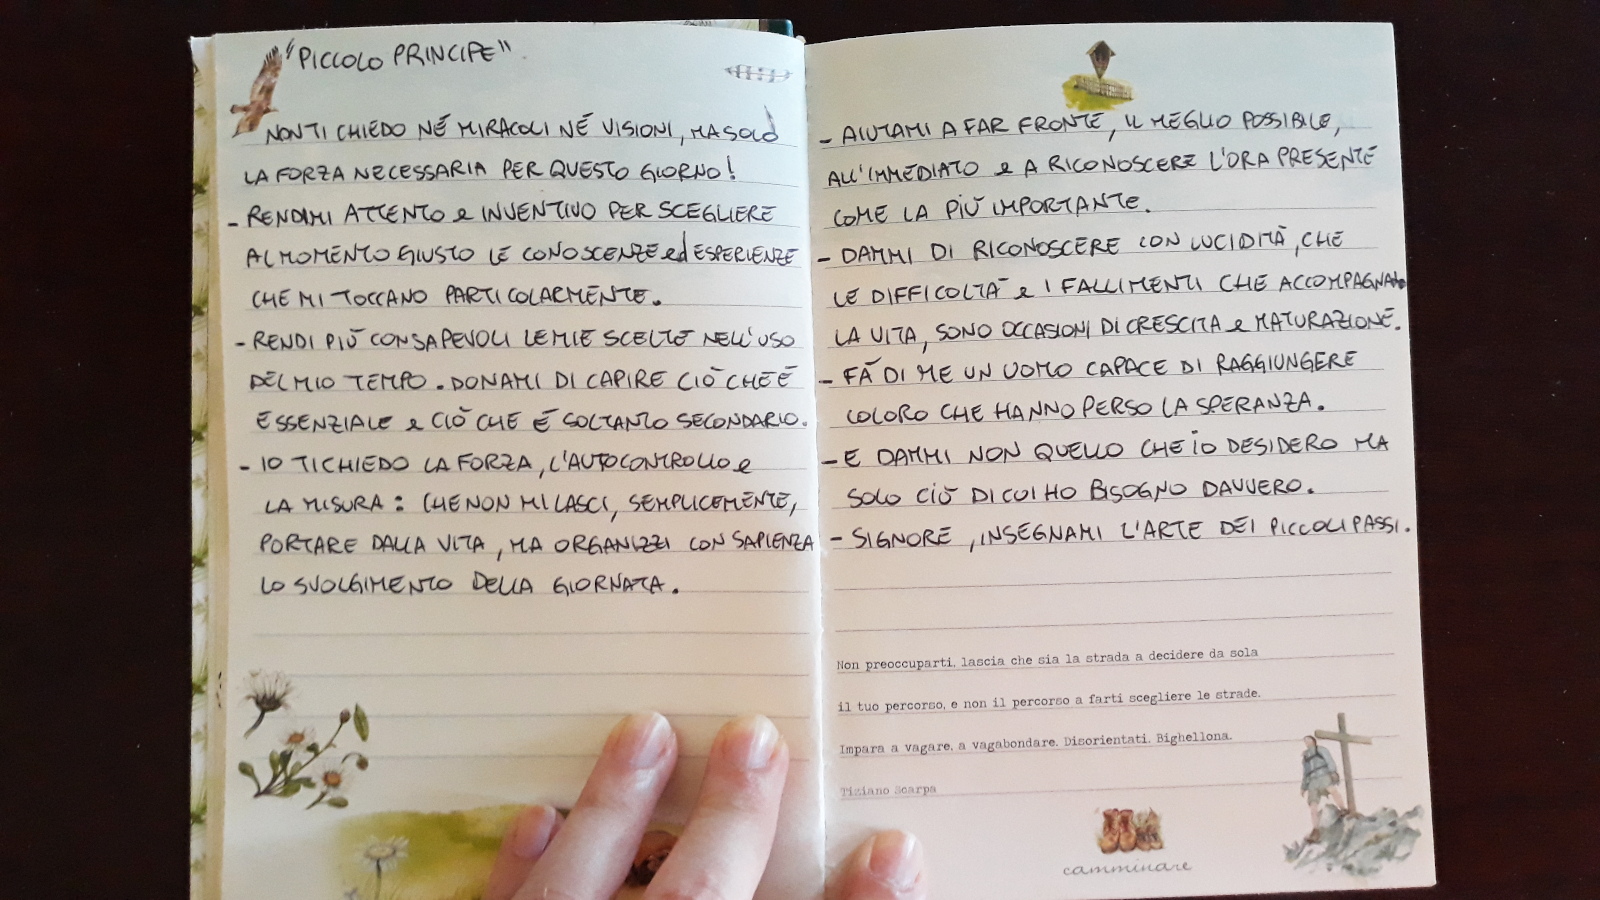 "PICCOLO PRINCIPE"
NON TI CHIEDO NÉ MIRACOLI NÉ VISIONI, MA SOLO
LA FORZA NECESSARIA PER QUESTO GIORNO!
- RENDIMI ATTENTO e INVENTIVO PER SCEGLIERE
AL MOMENTO GIUSTO LE CONOSCENZE ed ESPERIENZE
CHE MI TOCCANO PARTICOLARMENTE.
- RENDI PIÙ CONSAPEVOLI LE MIE SCELTE NELL'USO
DEL MIO TEMPO. DONAMI DI CAPIRE CIÒ CHE È
ESSENZIALE e CIÒ CHE È SOLTANTO SECONDARIO.
- IO TI CHIEDO LA FORZA, L'AUTOCONTROLLO e
LA MISURA: CHE NON MI LASCI, SEMPLICEMENTE,
PORTARE DALLA VITA, MA ORGANIZZI CON SAPIENZA
LO SVOLGIMENTO DELLA GIORNATA.
- AIUTAMI A FAR FRONTE, IL MEGLIO POSSIBILE,
ALL'IMMEDIATO e A RICONOSCERE L'ORA PRESENTE
COME LA PIÙ IMPORTANTE.
- DAMMI DI RICONOSCERE CON LUCIDITÀ, CHE
LE DIFFICOLTÀ e I FALLIMENTI CHE ACCOMPAGNANO
LA VITA, SONO OCCASIONI DI CRESCITA e MATURAZIONE.
- FÀ DI ME UN UOMO CAPACE DI RAGGIUNGERE
COLORO CHE HANNO PERSO LA SPERANZA.
- E DAMMI NON QUELLO CHE iO DESIDERO MA
SOLO CIÒ DI CUI HO BISOGNO DAVVERO.
- SIGNORE, INSEGNAMI L'ARTE DEI PICCOLI PASSI.
Non preoccuparti, lascia che sia la strada a decidere da sola
il tuo percorso, e non il percorso a farti scegliere le strade.
Impara a vagare, a vagabondare. Disorientati. Bighellona.
Tiziano Scarpa
camminare